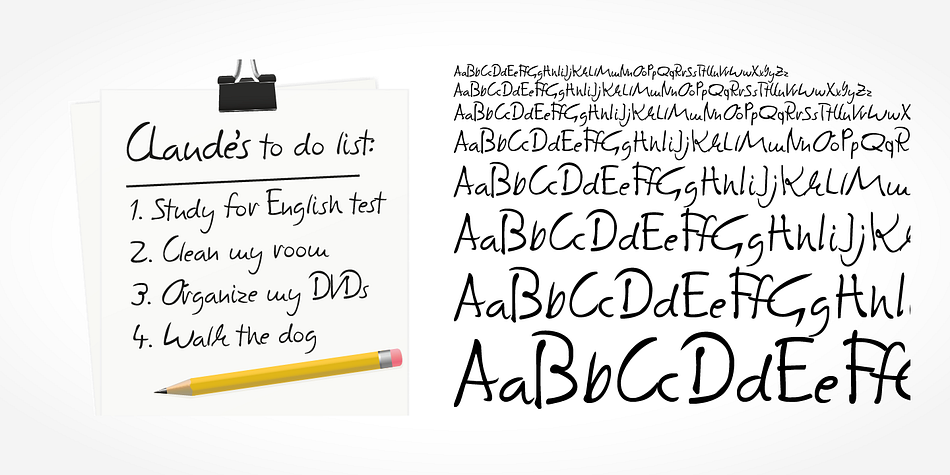 Claude's to do list:
1. Study for English test
2. Clean my room
3. Organize my DVDs
4. Walk the dog
AaBbCcDdEeFfGgHhIiJjKkLlMmNnOoPpQqRrSsTtUuVvWwXxYyZz
AaBbCcDdEeFfGgHhIiJjKkLlMmNnOoPpQqRrSsTtUuVvWwXxYyZz
AaBbCcDdEeFfGgHhIiJjKkLlMmNnOoPpQqRrSsTtUuVvWwX
AaBbCcDdEeFfGgHhIiJjKkLlMmNnOoPpQqR
AaBbCcDdEeFfGgHhIiJjKkLlMm
AaBbCcDdEeFfGgHhIiJjK
AaBbCcDdEeFfGgHhI
AaBbCcDdEeFf